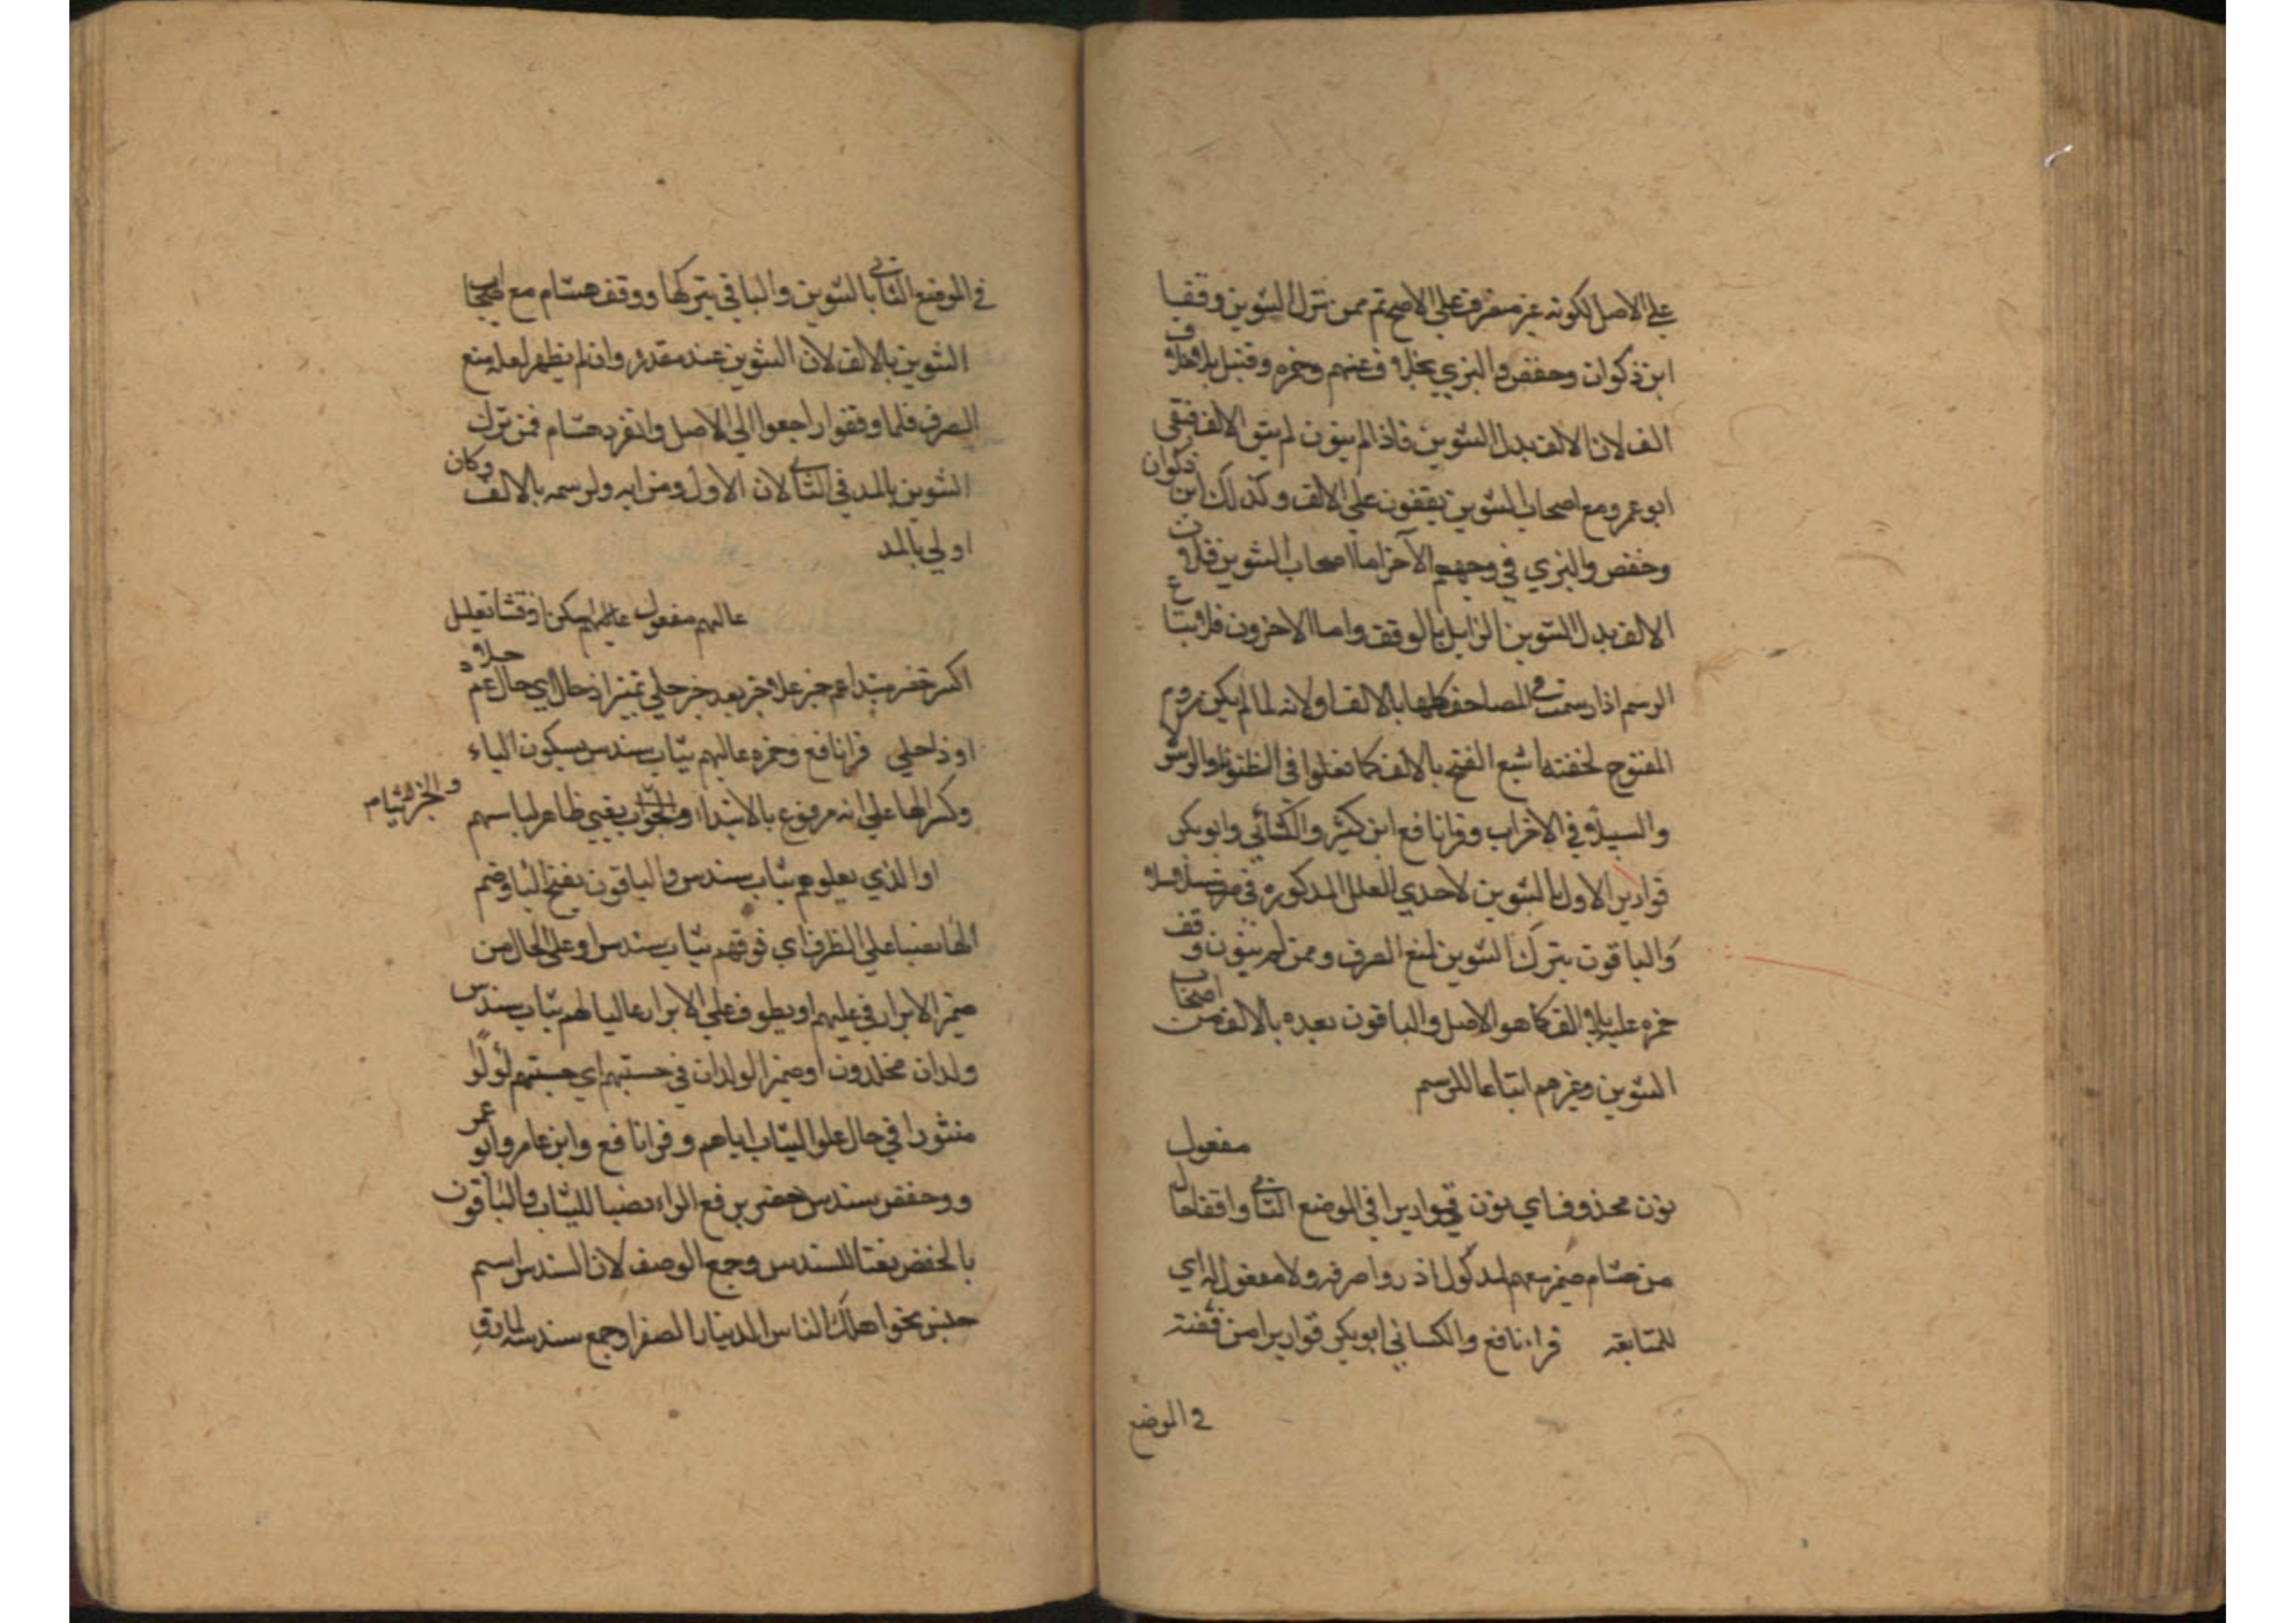 على الاصل لكونه غير منصرف على الاصح ثم ممن ترك التنوين وقفا
ابن ذكوان وحفص والبزي بخلاف عنهم وحمزه وقنبل بلا خلاف
الف لان الالف بدل التنوين فاذا لم ينون لم يبق الالف فبقى
ابو عمرو مع اصحاب التنوين يقفون على الالف وكذلك ابن ذكوان
وحفص والبزي في وجههم الآخر اما اصحاب التنوين فلان
الالف بدل التنوين الزايل بالوقف واما الاخرون فلاتباع
الرسم اذا رسمت في المصاحف كلها بالالف اولانه لما لم يكن روم
المفتوح لخفته اشبع الفتح بالالف كما فعلوا فى الظنونا والرسولا
والسبيلا في الاحزاب وقرا نافع ابن كثير والكسائي وابو بكر
قوارير الاول بالتنوين لاحدي العلل المذكوره في سلاسلا
والباقون بترك التنوين لمنع الصرف وممن لم ينون وقف
حمزه عليه بلا الف كما هو الاصل والباقون بعده بالالف من اصحاب
التنوين وغيرهم اتباعا للرسم
مفعول
نون محذوف اي نون قواريرا في الموضع الثاني واقفا
من هشام ضمير معهم لمدلول اذ روا صرفه ولا مفعول له اي
للمتابعة قراء نافع والكسائي ابو بكر قواريرا من فضة
في الموضع
في الموضع الثاني بالتنوين والباقي بتركها ووقف هشام مع اصحاب
التنوين بالالف لان التنوين عنده مقدر وان لم يظهر لعله منع
الصرف فلما وقفوا راجعوا الي الاصل وانفرد هشام فمن ترك
التنوين بالمد في الثاني لان الاول ومن ايه ولرسمه بالالف وكان
اولي بالمد
عاليهم مفعول عاليهم سكن اذ فشا تعليل
اكسر خضر مبتدا عم خبر علا خبر بعد خبر حلي تميز او حال اي حال عم علا
او ذا حلي قرا نافع وحمزه عاليهم ثياب سندس بسكون الياء
وكسر الها على انه مرفوع بالابتداء والخبر ثياب يعني ظاهر لباسهم
او الذي يعلوهم ثياب سندس والباقون بفتح اليا وضم
الها نصبا علي الظرف اي فوقهم ثياب سندس او على الحال من
ضمير الابرار في عليهم او يطوف على الابرار عاليا لهم ثياب سندس
ولدان مخلدون او ضمير الولدان في حسبتهم اي حسبتهم لؤلؤا
منثورا في حال علو الثياب اياهم وقرا نافع وابن عامر وابو عمر
و وحفص سندس خضر برفع الراء نصبا للثياب والباقون
بالخفض نعتا للسندس وجمع الوصف لان السندس اسم
جنس نحو اهلك الناس الدينار الصفر او جمع سندسة لمارق